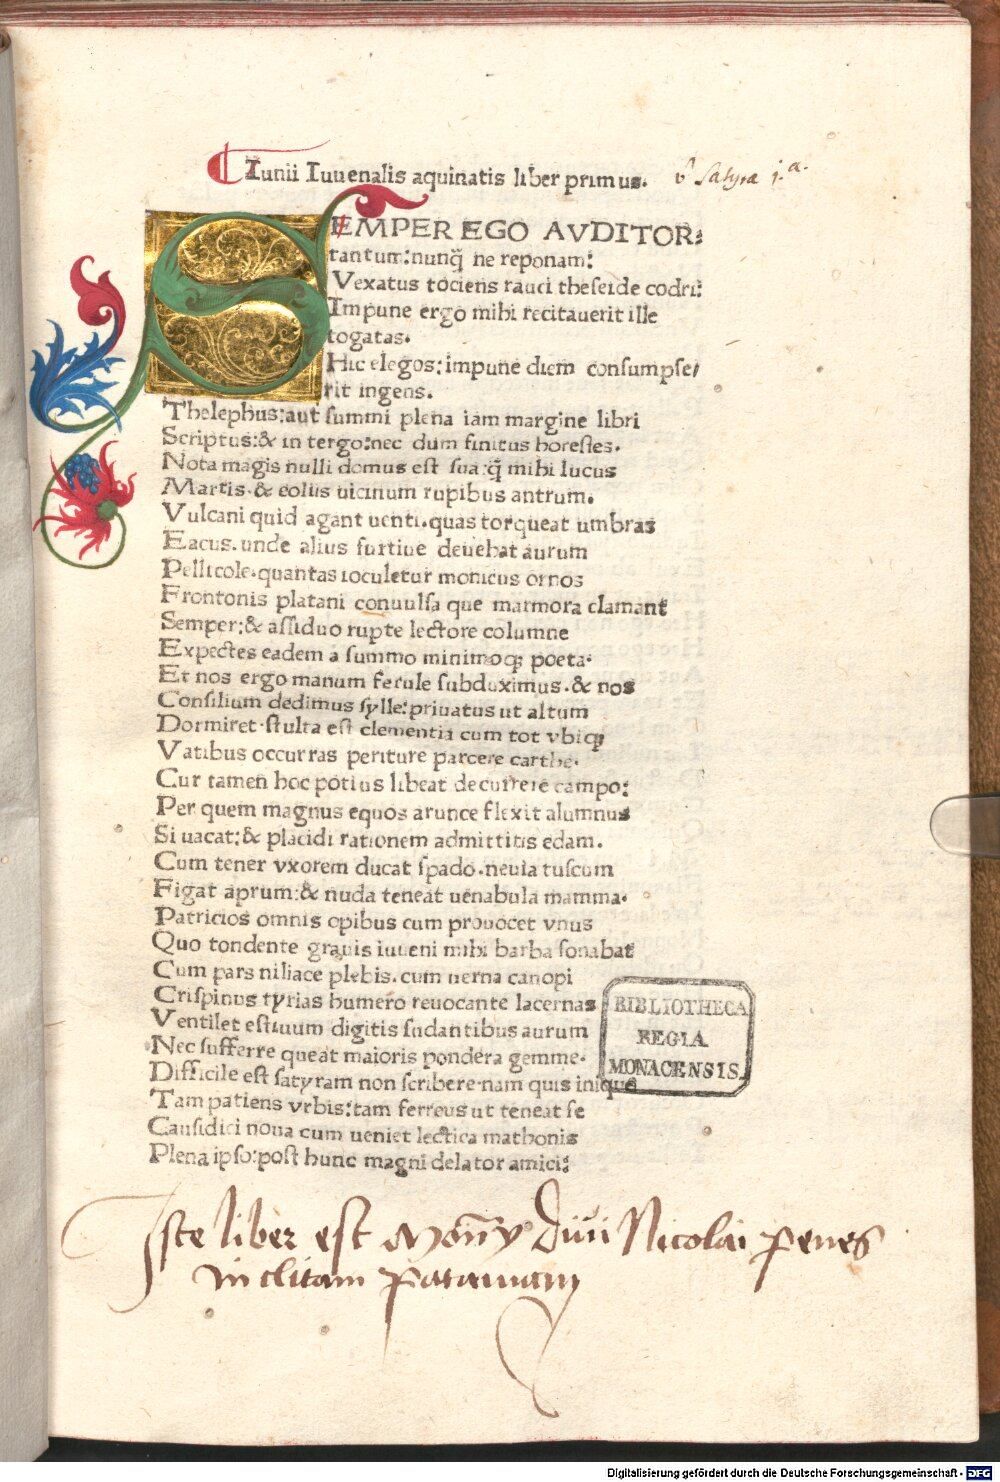 Iunii Iuuenalis aquinatis liber primus. Satyra j.a.
SEMPER EGO AVDITOR:
tantum: nunq̃ ne reponam:
Vexatus tociens rauci theseide codri:
Impune ergo mihi recitauerit ille
togatas.
Hic elegos: impune diem consumpse/
rit ingens.
Thelephus: aut summi plena iam margine libri
Scriptus: & in tergo: nec dum finitus horestes.
Nota magis nulli domus est sua: q̃ mihi lucus
Martis. & eolus uicinum rupibus antrum.
Vulcani quid agant uenti. quas torqueat umbras
Eacus. unde alius furtiue deuehat aurum
Pellicole. quantas ioculetur monicus ornos
Frontonis platani conuulsa que marmora clamant
Semper: & assiduo rupte lectore columne
Expectes eadem a summo minimoqꝫ poeta.
Et nos ergo manum ferule subduximus. & nos
Consilium dedimus sylle: priuatus ut altum
Dormiret. stulta est clementia cum tot vbiqꝫ
Vatibus occurras periture parcere carthe.
Cur tamen hoc potius libeat decurrere campo:
Per quem magnus equos arunce flexit alumnus
Si uacat: & placidi rationem admittitis edam.
Cum tener vxorem ducat spado. neuia tuscum
Figat aprum: & nuda teneat uenabula mamma.
Patricios omnis opibus cum prouocet vnus
Quo tondente grauis iuueni mihi barba sonabat
Cum pars niliace plebis. cum uerna canopi
Crispinus tyrias humero reuocante lacernas
Ventilet estiuum digitis sudantibus aurum
Nec sufferre queat maioris pondera gemme.
Difficile est satyram non scribere. nam quis inique
Tam patiens vrbis: tam ferreus ut teneat se
Causidici noua cum ueniet lectica mathonis
Plena ipso: post hunc magni delator amici:
BIBLIOTHECA
REGIA
MONACENSIS.
Iste liber est Moñy Diui Nicolai penes
inclitam patauiam
Digitalisierung gefördert durch die Deutsche Forschungsgemeinschaft - DFG